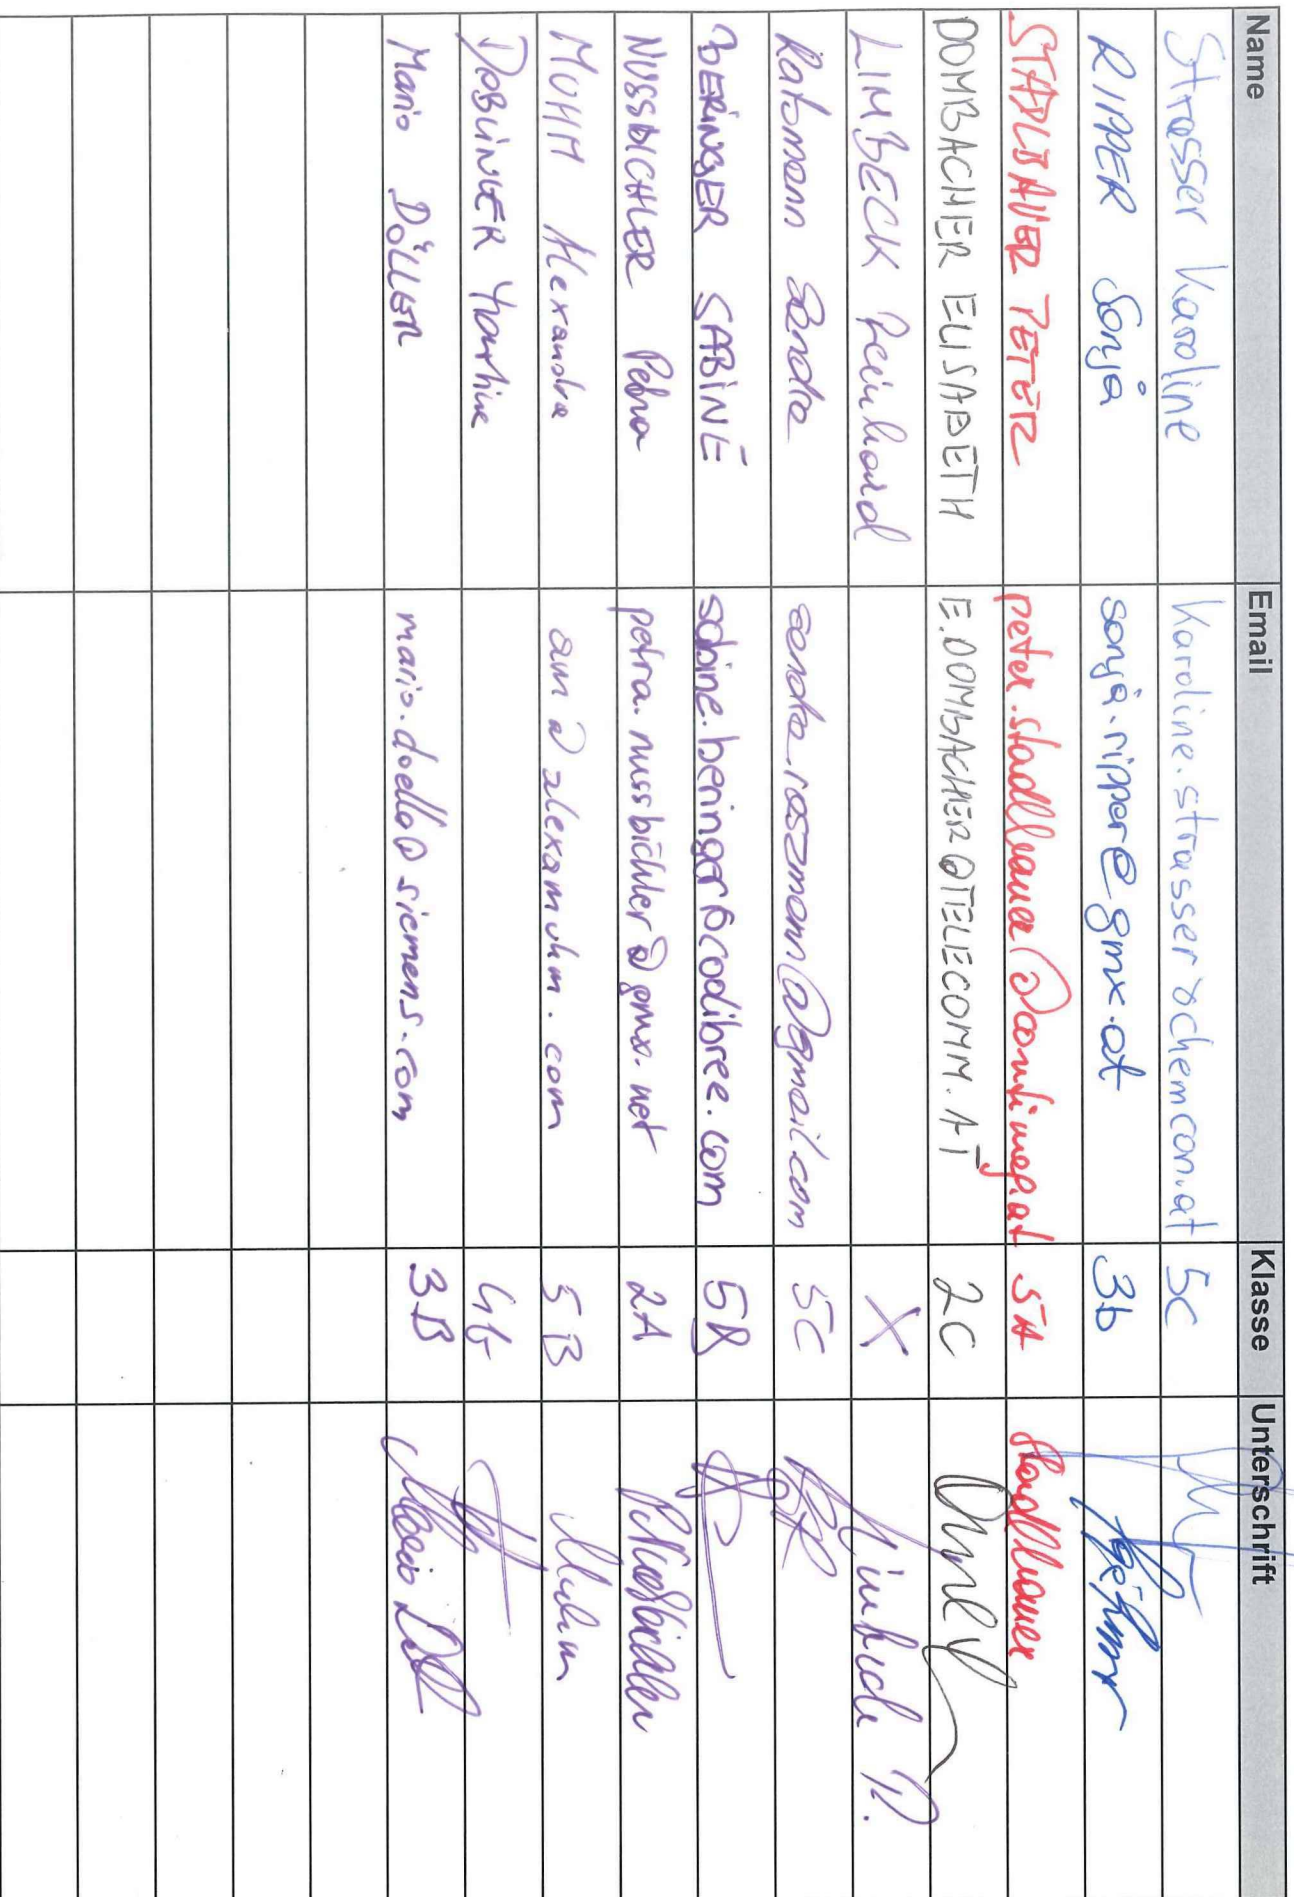 Name Email Klasse Unterschrift
Strasser Karoline karoline.strasser@chemcon.at 5C
RIPPER Sonja sonja.ripper@gmx.at 3b
STADLBAUER PETER peter.stadlbauer@contimep.at 5A Stadlbauer
DOMBACHER ELISABETH E.DOMBACHER@TELECOMM.AT 2C
LIMBECK Reinhard X Limbeck R.
Sandra sandra.roszmann@gmail.com 5C
BERINGER SABINE sabine.beringer@codibree.com 5B
NUSSBICHLER Petra petra.nussbichler@gmx.net 2A P. Nussbichler
MUHM Alexandra am@alexamuhm.com 5B Muhm
DOBLINGER Martina 4b
Mario DÖLLER mario.doella@siemens.com 3B Mario Döll